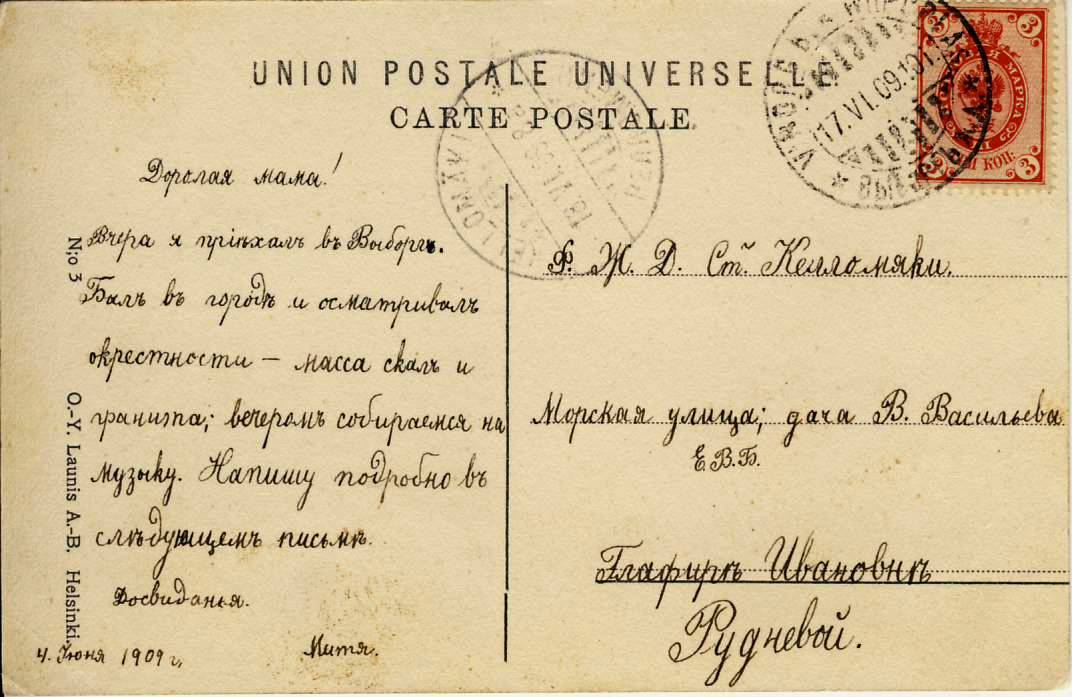 UNION POSTALE UNIVERSELLE.
CARTE POSTALE.
17.VI.09.
KELLOMÄKI
18.VI.
3 3
МАРКА
КОП.
3 3
Дорогая мама!
Вчера я пріѣхалъ въ Выборгъ.
Былъ въ городѣ и осматривалъ
окрестности — масса скалъ и
гранита; вечеромъ собираемся на
музыку. Напишу подробно въ
слѣдующемъ письмѣ.
Досвиданья.
Митя.
4. Іюня 1909 г.
N:o 3
O.-Y. Launis A.-B. Helsinki.
Ф. Ж. Д. Ст. Келломяки.
Морская улица; дача В. Васильева
Е.В.Б.
Глафирѣ Ивановнѣ
Рудневой.